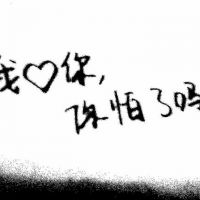 我♡你,
你怕了吗